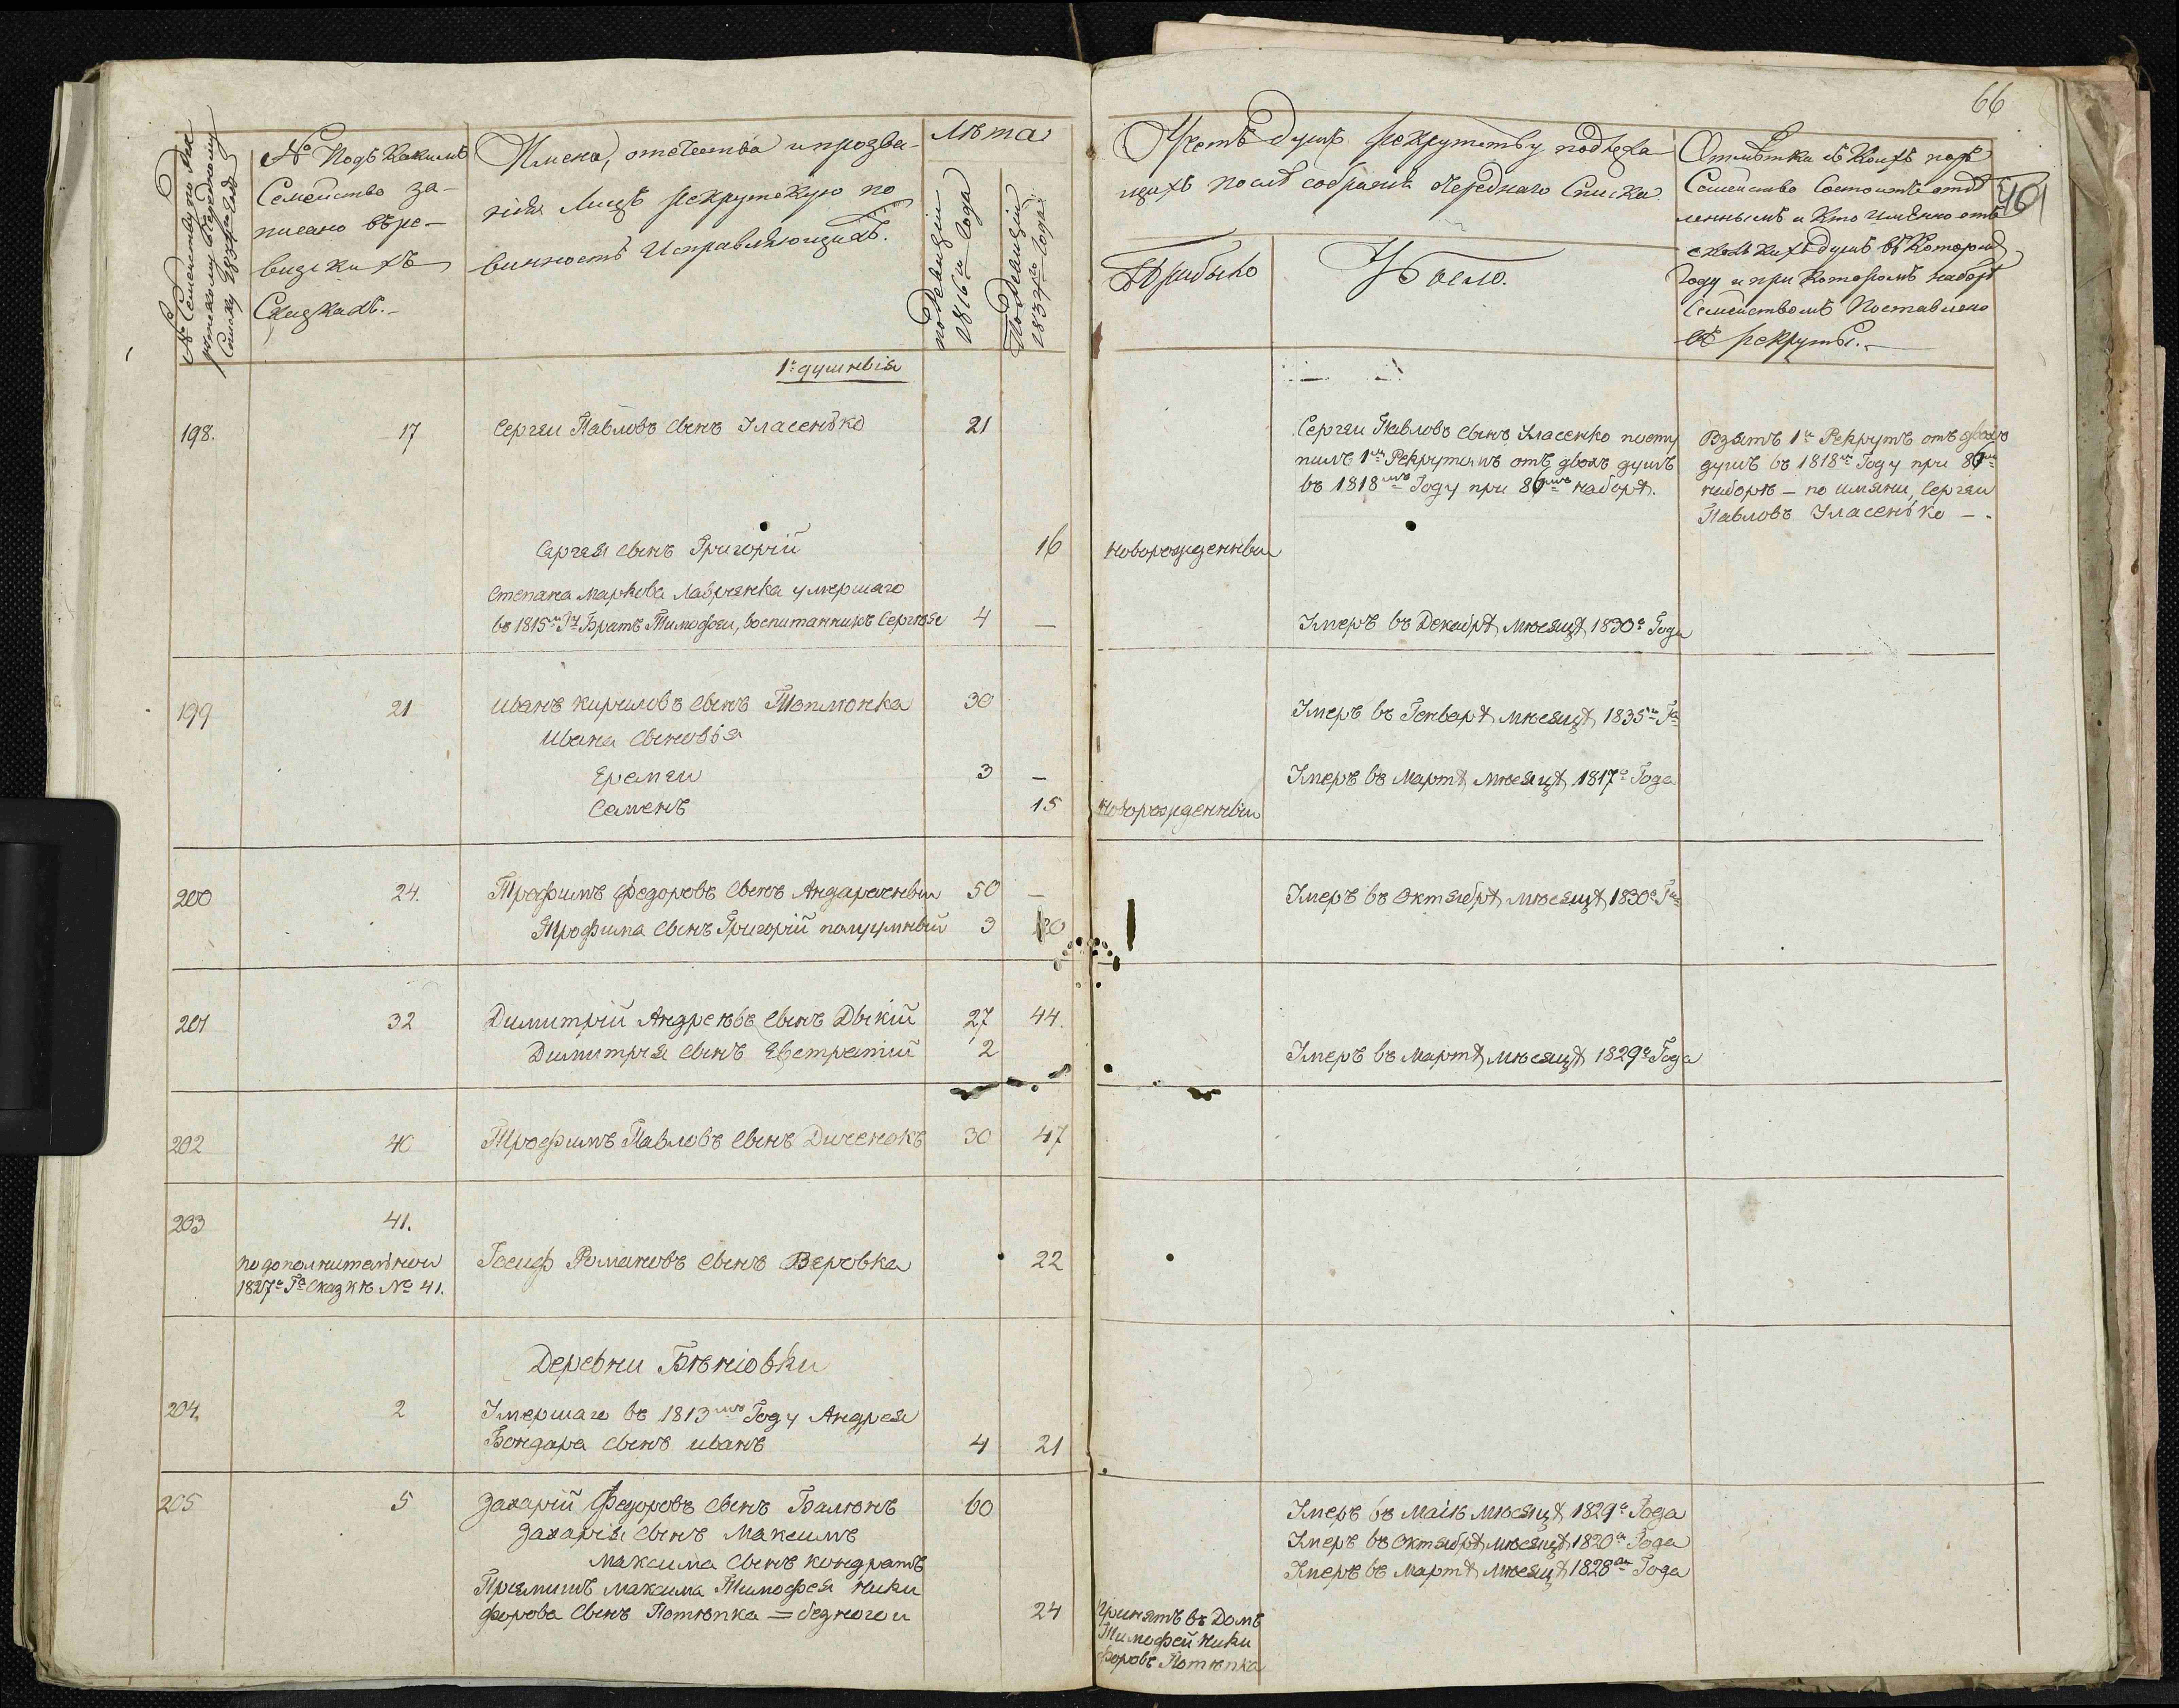 66
401
№ Семейству по рек
рутскому очередному
Списку
№ Подъ Какимъ
Семейство за-
писано въ ре-
визскихъ
Сказкахъ.-
Имена, отечества и прозва-
нія Лицъ рекрутскую по
винность Исправляющихъ.
Лѣта
по Ревизіи
1816го Года
По Ревизіи
1834го Года
Счетъ Душъ рекрутству подлежа
щихъ послѣ собранія Очереднаго Списка
Прибыло
Убыло.
Отмѣтка съ Коихъ поръ
Семейство Состоитъ отдѣ
леннымъ и Кто именно отъ
сколькихъ душъ въ Которомъ
Году и при Которомъ наборѣ
Семействомъ Поставлено
въ рекруты.-
1о душнвія
198.
17
Сергѣи Павловъ Сынъ Уласенько
21
Сергѣи Павловъ Сынъ Уласенко посту
пилъ 1мъ Рекрутомъ отъ двохъ душъ
въ 1818мъ Году при 86мъ наборѣ.
Взятъ 1й Рекрутъ отъ двохъ
душъ въ 1818мъ Году при 86мъ
наборѣ — по имяни, Сергѣи
Павловъ Уласенько —.
Сергѣя Сынъ Григорій
16
новорожденнвіи
Степана Маркова Лавренка умершаго
въ 1815м Гд Братъ Тимофеи, воспитанникъ Сергѣя
4
—
Умеръ въ Декабрѣ мѣсяцѣ 1830о Года
199
21
Иванъ Кириловъ Сынъ
30
Умеръ въ Генварѣ мѣсяцѣ 1835го Гд
Ивана Сыновія
Еремѣи
3
—
Умеръ въ Мартѣ мѣсяцѣ 1817о Года
Семенъ
15
Новорожденнвіи
200
24.
Трофимъ Федоровъ Сынъ
50
—
Умеръ въ Октябрѣ мѣсяцѣ 1830о Гда
Трофима Сынъ Григорій полуумнвій
3
20
201
32
Димитрій Андреѣвъ Сынъ Дикій
27
44.
Димитрія Сынъ Евстратій
2
Умеръ въ Мартѣ мѣсяцѣ 1829о Года
202
40
Трофимъ Павловъ Сынъ Диченокъ
30
47
203
41.
по дополнительнои
1827о Гд Сказкѣ № 41.
Іосиф Романовъ Сынъ Веровка
22
Деревни Бѣніовки
204.
2
Умершаго въ 1813мъ Году Андрея
Бондара Сынъ Иванъ
4
21
205
5
Захарій Федоровъ Сынъ Балюнъ
60
Умеръ въ Маіѣ мѣсяцѣ 1829о Года
Захарія Сынъ Максимъ
Умеръ въ Октябрѣ мѣсяцѣ 1820о Года
Максима Сынъ Кондратъ
Умеръ въ Мартѣ мѣсяцѣ 1828го Года
Прiямишъ Максима Тимофея Ники
форова Сынъ Потѣпка =
24
Принятъ въ Домъ
Тимофей Ники
форовъ Потѣпка